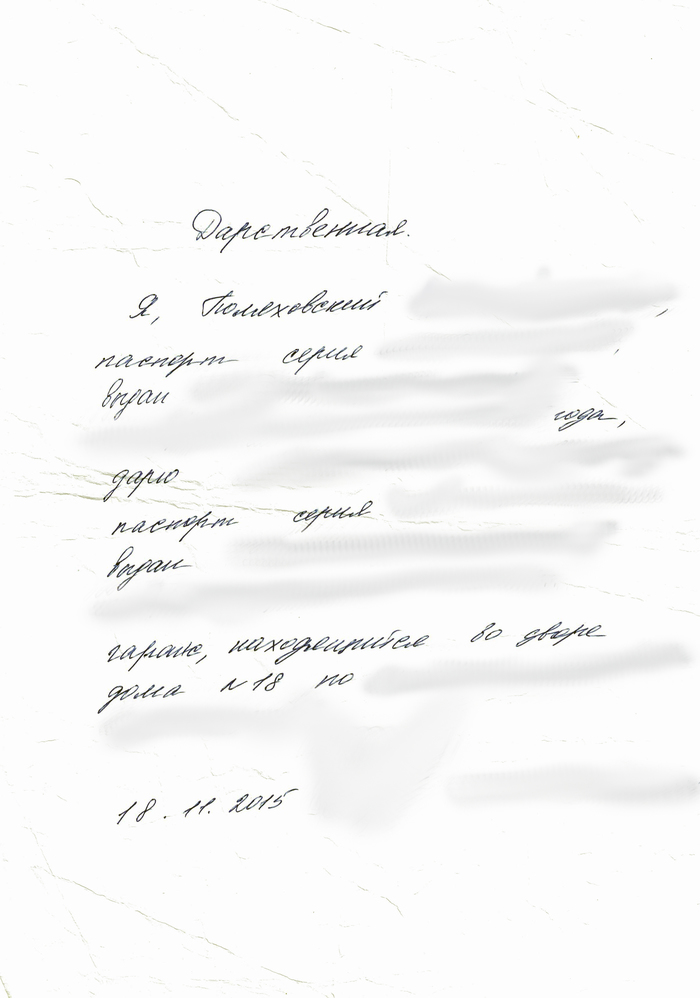 Дарственная.
Я, Поляховский ,
паспорт серия ,
выдан
года,
дарю
паспорт серия
выдан
гараж, находящийся во дворе
дома №18 по
18.11.2015